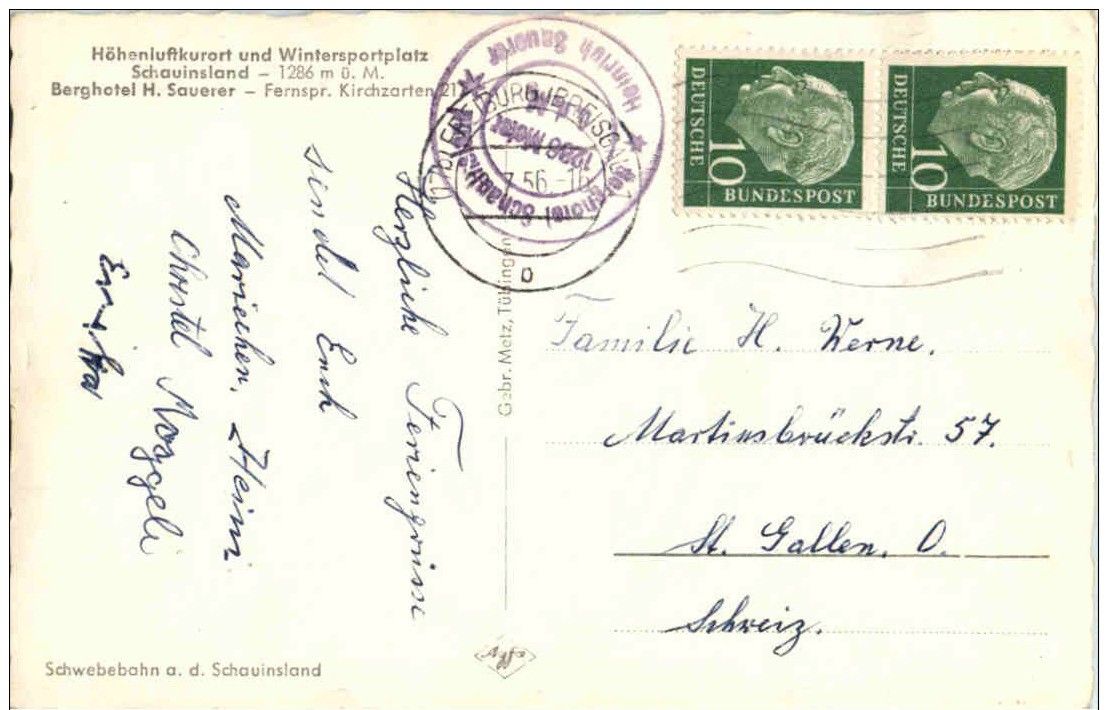 Höhenluftkurort und Wintersportplatz
Schauinsland – 1286 m ü. M.
Berghotel H. Sauerer – Fernspr. Kirchzarten 21
Herzliche Feriengrüsse
sendet Euch
Mariechen, Heini
Christel Moggeli
Schwebebahn a. d. Schauinsland
Gebr. Metz, Tübingen
Heinrich Sauerer
1286 Meter
Berghotel
7.56
b
DEUTSCHE
10
BUNDESPOST
DEUTSCHE
10
BUNDESPOST
Familie H. Werne.
Martinsbrückstr. 57.
St. Gallen. O.
Schweiz.